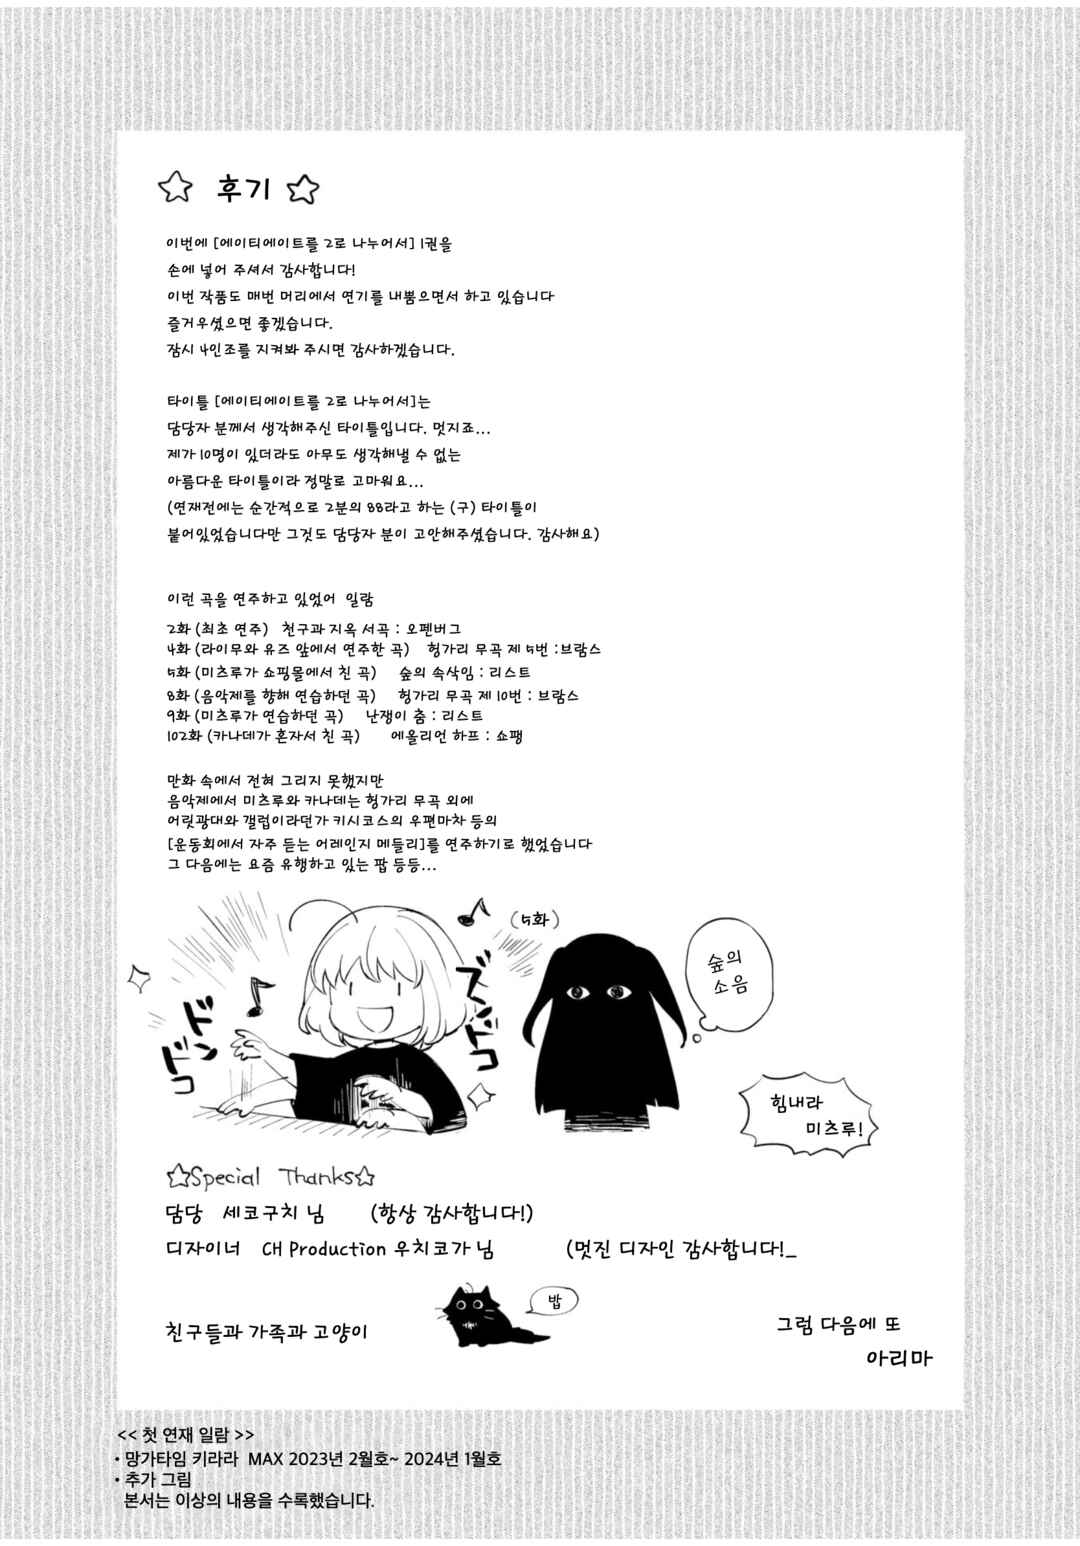 ☆ 후기 ☆
이번에 [에이티에이트를 2로 나누어서] 1권을
손에 넣어 주셔서 감사합니다!
이번 작품도 매번 머리에서 연기를 내뿜으면서 하고 있습니다
즐거우셨으면 좋겠습니다.
잠시 4인조를 지켜봐 주시면 감사하겠습니다.
타이틀 [에이티에이트를 2로 나누어서]는
담당자 분께서 생각해주신 타이틀입니다. 멋지죠...
제가 10명이 있더라도 아무도 생각해낼 수 없는
아름다운 타이틀이라 정말로 고마워요...
(연재전에는 순간적으로 2분의 88라고 하는 (구) 타이틀이
붙어있었습니다만 그것도 담당자 분이 고안해주셨습니다. 감사해요)
이런 곡을 연주하고 있었어 일람
2화 (최초 연주) 천구과 지옥 서곡 : 오펜버그
4화 (라이무와 유즈 앞에서 연주한 곡) 헝가리 무곡 제 5번 :브람스
5화 (미츠루가 쇼핑몰에서 친 곡) 숲의 속삭임 : 리스트
8화 (음악제를 향해 연습하던 곡) 헝가리 무곡 제 10번 : 브람스
9화 (미츠루가 연습하던 곡) 난쟁이 춤 : 리스트
102화 (카나데가 혼자서 친 곡) 에올리언 하프 : 쇼팽
만화 속에서 전혀 그리지 못했지만
음악제에서 미츠루와 카나데는 헝가리 무곡 외에
어릿광대와 갤럽이라던가 키시코스의 우편마차 등의
[운동회에서 자주 듣는 어레인지 메들리]를 연주하기로 했었습니다
그 다음에는 요즘 유행하고 있는 팝 등등...
(5화)
숲의
소음
ズンドコ
ドンドコ
힘내라
미츠루!
☆Special Thanks☆
담당 세코구치 님 (항상 감사합니다!)
디자이너 CH Production 우치코가 님 (멋진 디자인 감사합니다!_
밥
친구들과 가족과 고양이
그럼 다음에 또
아리마
<< 첫 연재 일람 >>
• 망가타임 키라라 MAX 2023년 2월호~ 2024년 1월호
• 추가 그림
본서는 이상의 내용을 수록했습니다.